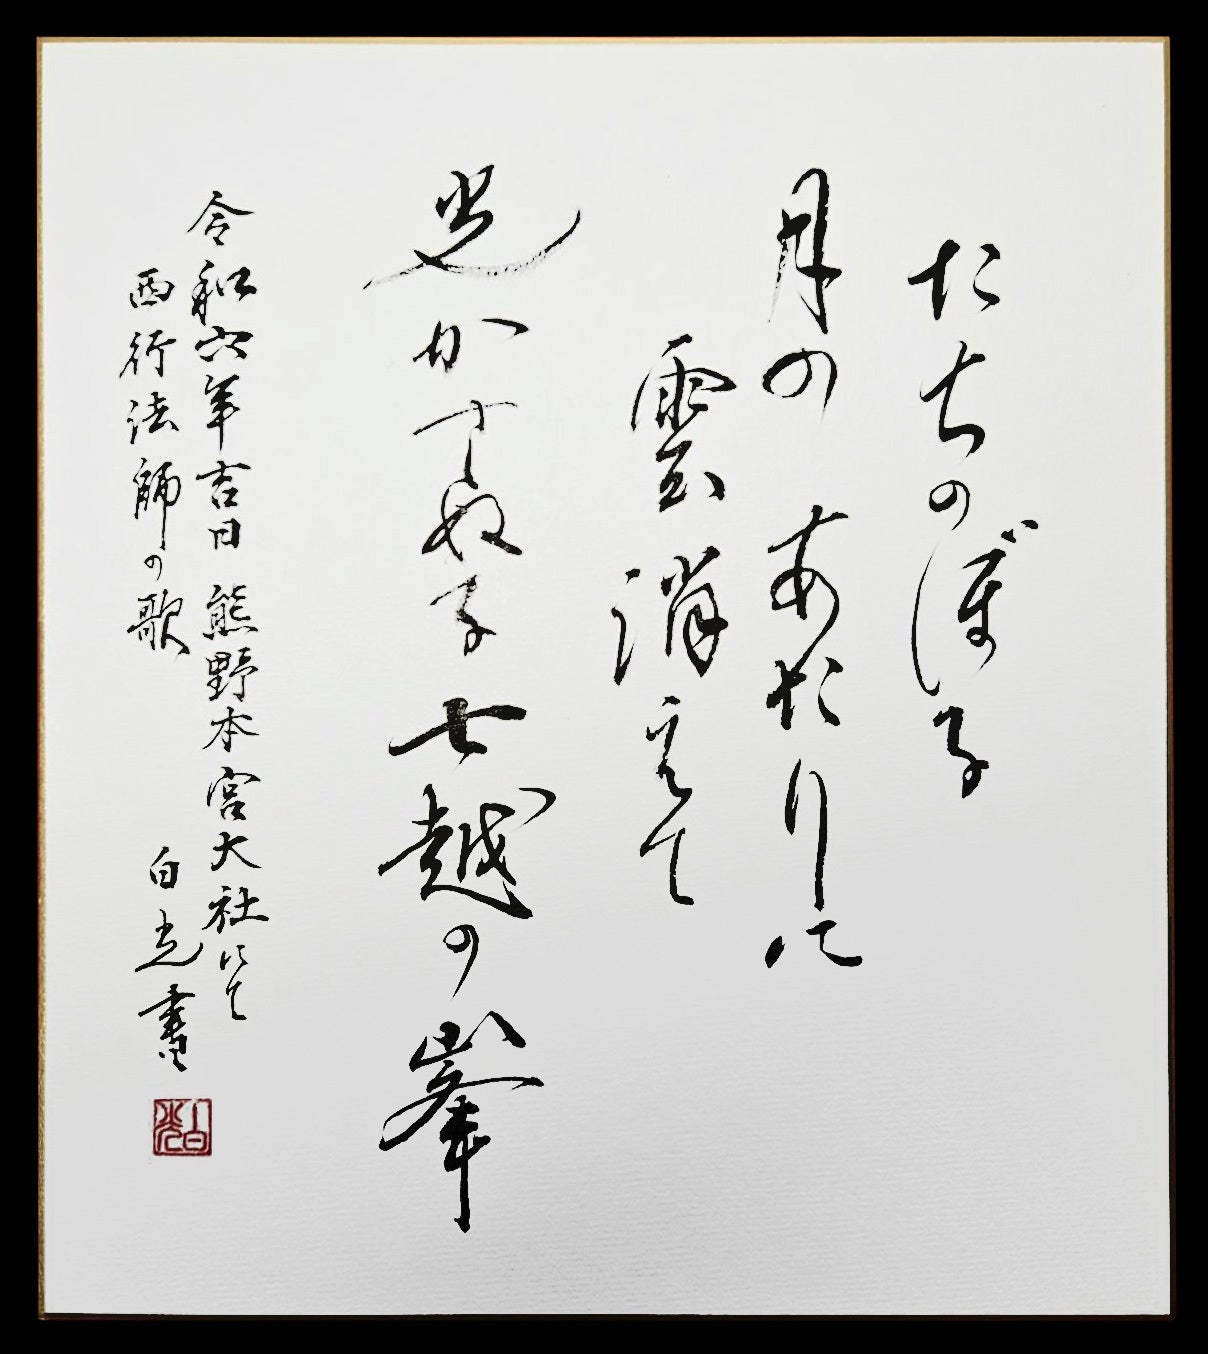 たちのぼる
月のあたりに
雲消えて
光かすぬる七越の峯
令和六年吉日 熊野本宮大社にて
西行法師の歌
白光書
白光